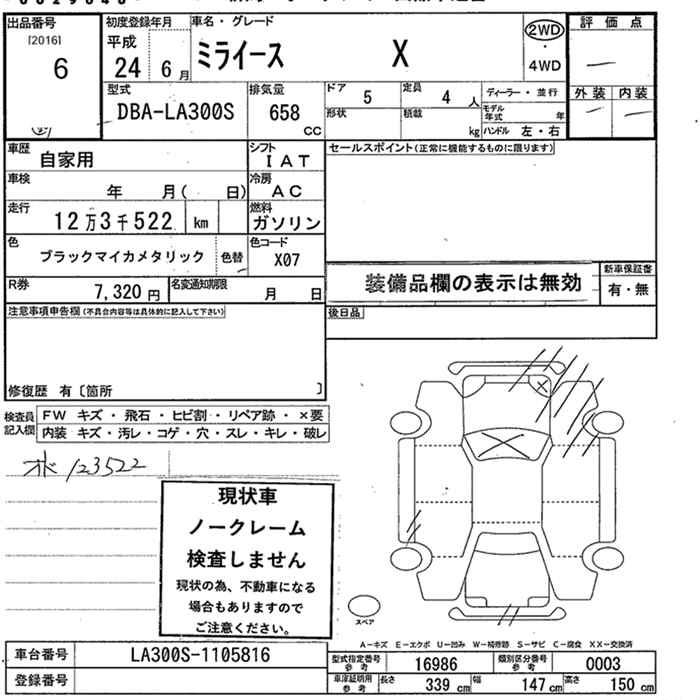 出品番号
[2016]
6
初度登録年月
平成
24 6 月
車名・グレード
ミライース X
2WD
・
4WD
評価点
—
外装 内装
— —
型式
DBA-LA300S
排気量
658
CC
ドア
5
定員
4 人
形状
積載
kg
ディーラー・並行
モデル年式 年
ハンドル 左・右
車歴
自家用
シフト
IAT
車検
年 月( 日)
冷房
AC
走行
12万3千522 km
燃料
ガソリン
色
ブラックマイカメタリック
色替
色コード
X07
R券
7,320 円
名変通知期限
月 日
セールスポイント(正常に機能するものに限ります)
装備品欄の表示は無効
新車保証書
有・無
後日品
注意事項申告欄(不具合内容等は具体的に記入して下さい)
修復歴 有〔箇所 〕
検査員記入欄
FW キズ・飛石・ヒビ割・リペア跡・×要
内装 キズ・汚レ・コゲ・穴・スレ・キレ・破レ
123522
現状車
ノークレーム
検査しません
現状の為、不動車になる
場合もありますので
ご注意ください。
スペア
A-キズ E-エクボ U-凹み W-補修跡 S-サビ C-腐食 XX-交換済
車台番号
LA300S-1105816
登録番号
型式指定番号
参考
16986
類別区分番号
参考
0003
車庫証明用
参考
長さ
339 cm
幅
147 cm
高さ
150 cm